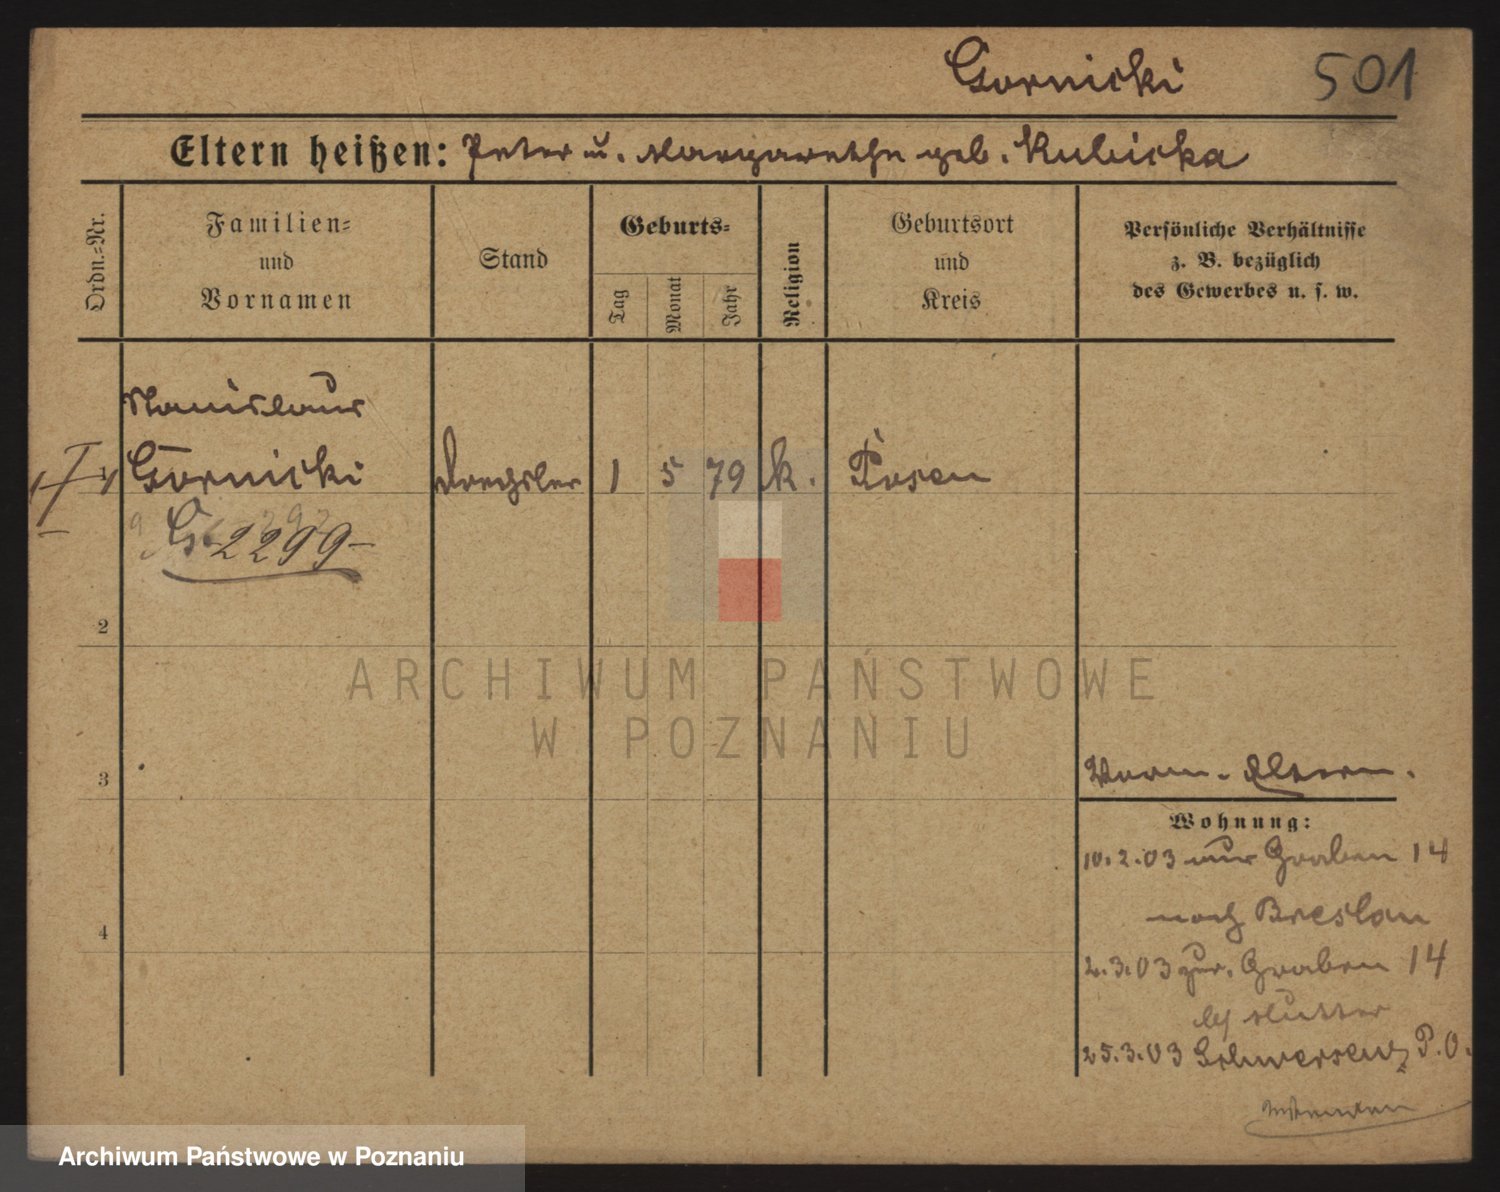 Gornicki 501
Eltern heißen: Peter u. Margarethe geb. Kubicka
Ordn.-Nr.
Familien-
und
Vornamen
Stand
Geburts-
Tag
Monat
Jahr
Religion
Geburtsort
und
Kreis
Persönliche Verhältnisse
z. B. bezüglich
des Gewerbes u. s. w.
Stanislaus
Gornicki Drechsler 1 5 79 k. Posen
2299
2
ARCHIWUM PAŃSTWOWE
W POZNANIU
3
Eltern.
Wohnung:
10.2.03 Graben 14
nach Breslau
4
2.3.03 zur. Graben 14
Mutter
25.3.03 Schwersenz P.O.
Archiwum Państwowe w Poznaniu